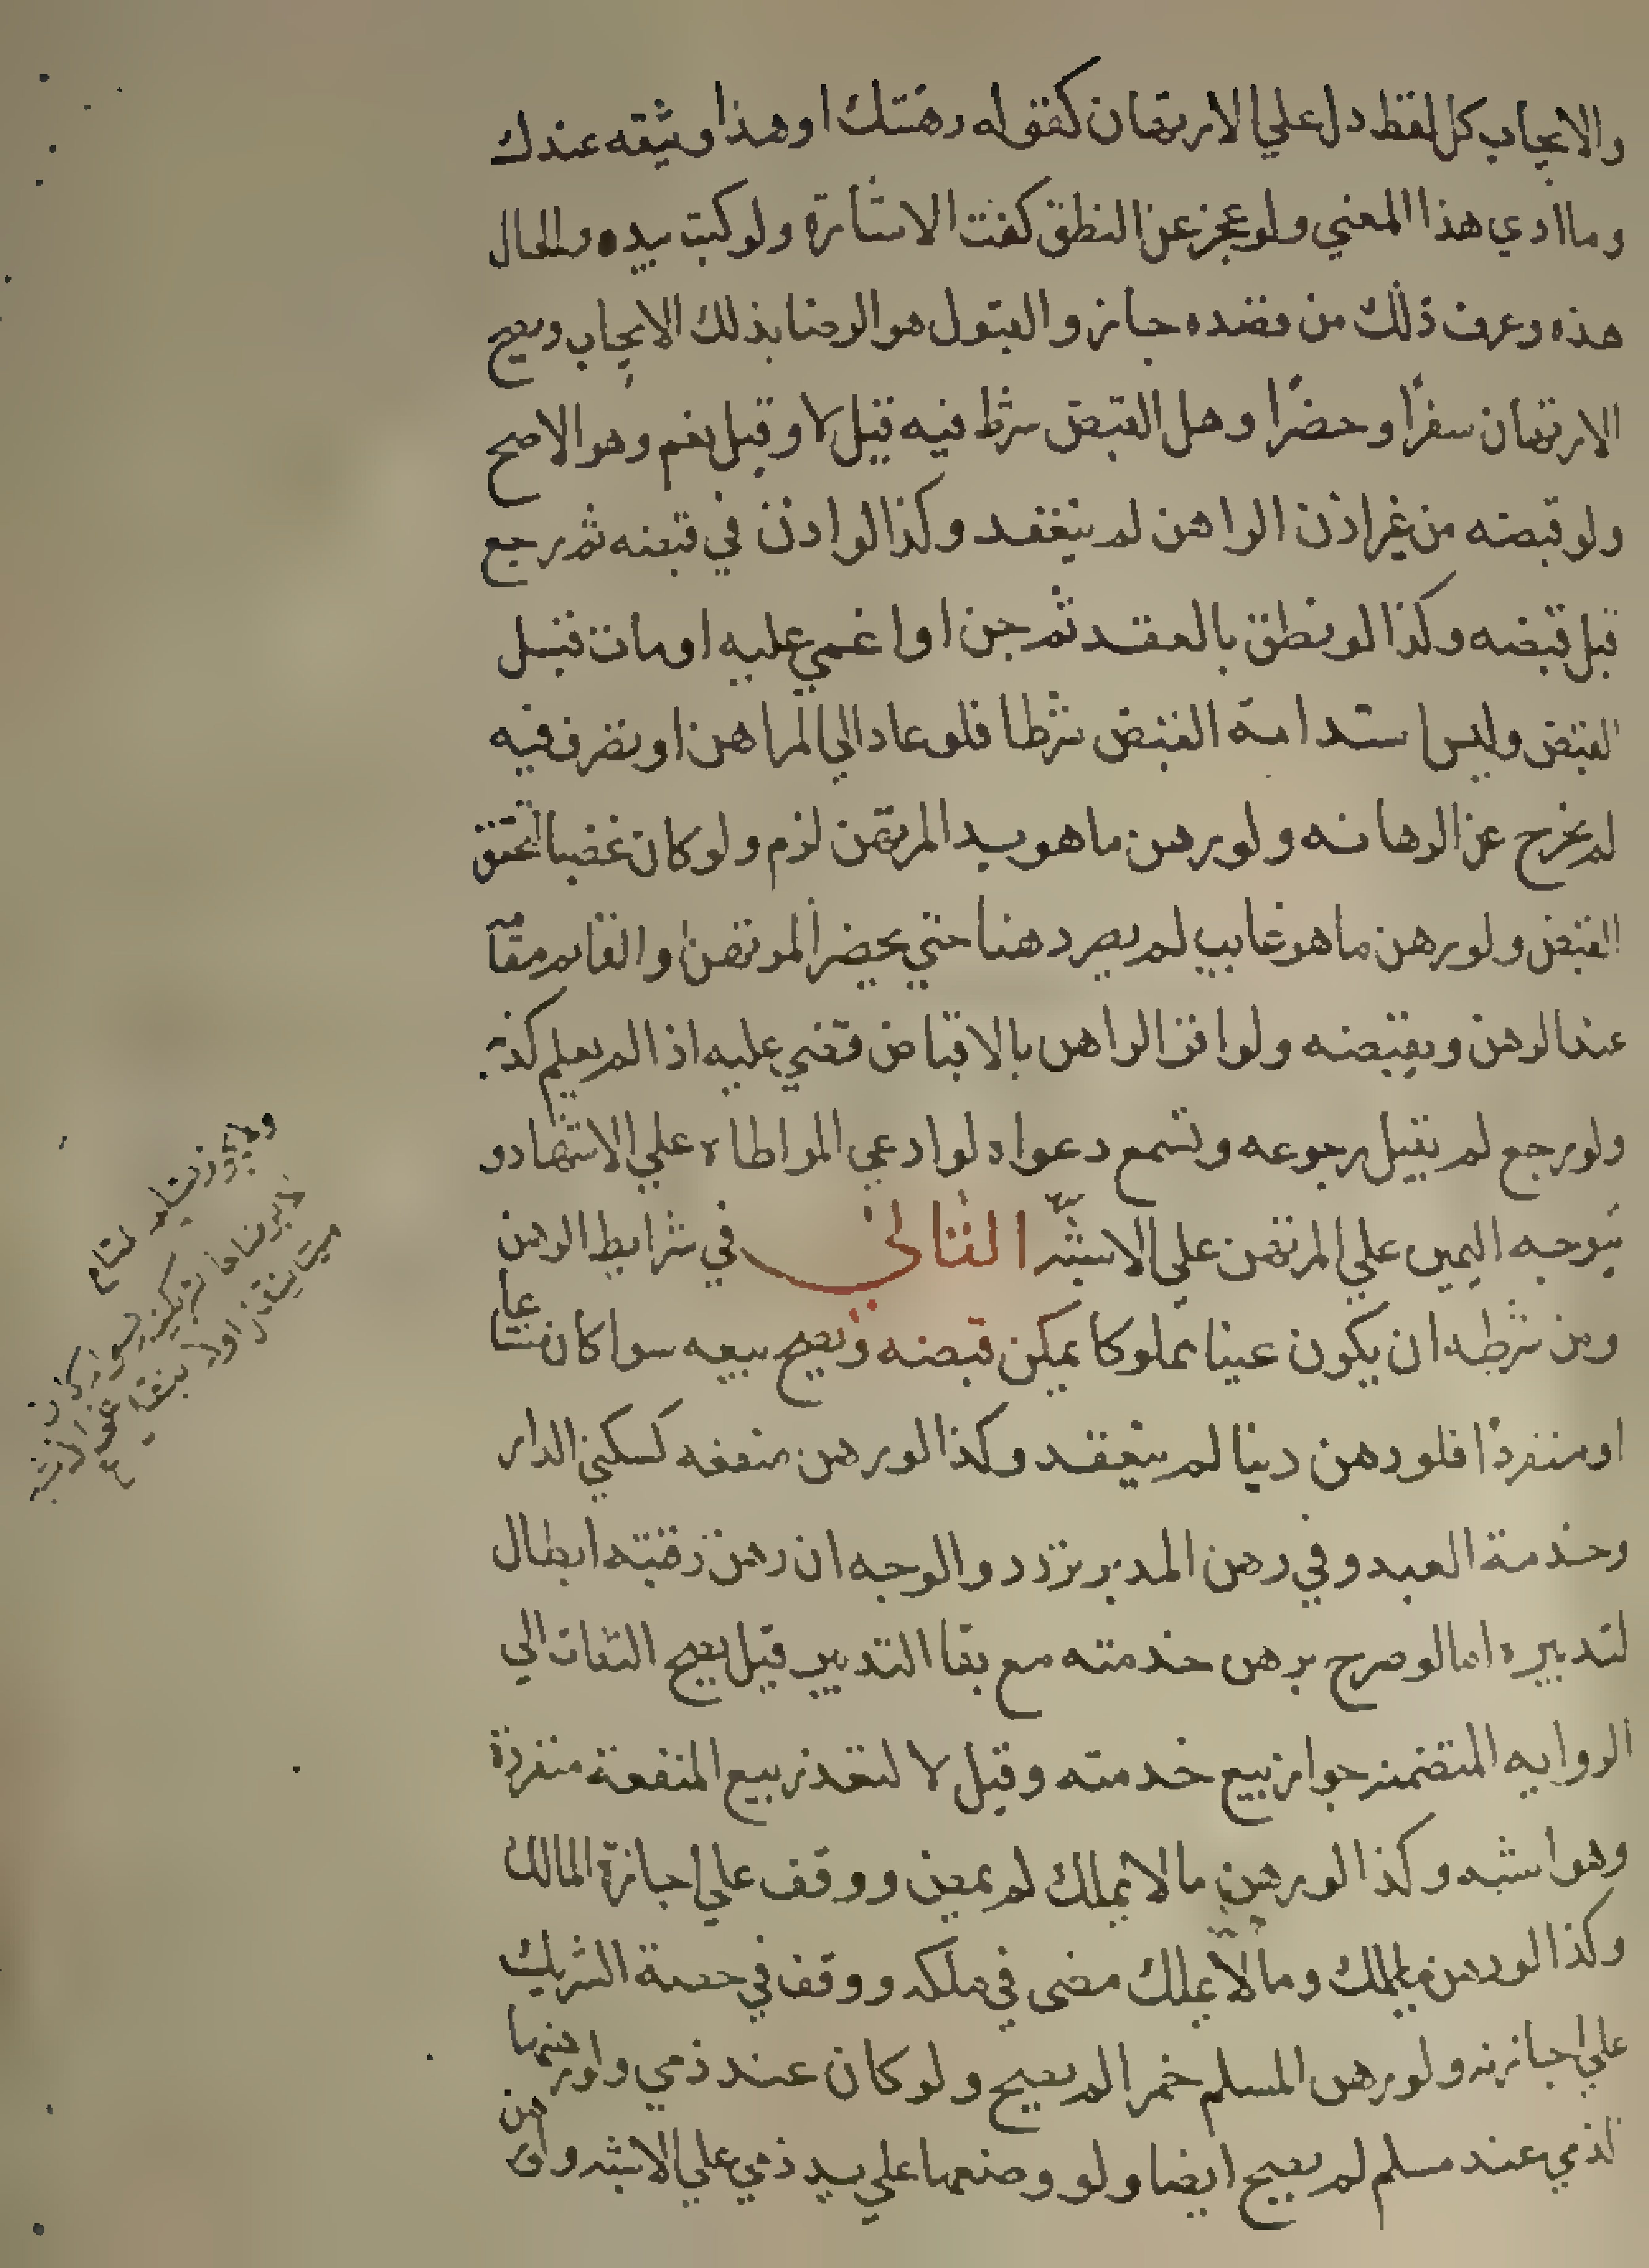 والايجاب كل لفظ دل علي الارتهان كقوله رهنتك او هذا وثيقه عندك
وما ادي هذا المعني ولو عجز عن النطق كفت الاشارة ولو كتب بيده والحال
هذه وعرف ذلك من قصده جاز و القبول هو الرضا بذلك الايجاب ويصح
الارتهان سفرًا وحضرًا وهل القبض شرط فيه قيل لا وقيل نعم وهو الاصح
ولو قبضه من غير اذن الراهن لم ينعقد وكذا لو اذن في قبضه ثم رجع
قبل قبضه وكذا لو نطق بالعقد ثم جن او اغمي عليه او مات قبل
القبض وليس استدامة القبض شرطا فلو عاد الي الراهن او تصرف فيه
لم يخرج عن الرهانه ولو رهن ما هو بيد المرتهن لزم ولو كان غصبا لتحقق
القبض ولو رهن ما هو غايب لم يصر رهنا حتي يحضر المرتهن او القايم مقامه
عند الرهن ويقبضه ولو اقر الراهن بالاقباض قضي عليه اذا لم يعلم كذبه
ولو رجع لم يقبل رجوعه وتسمع دعواه لو ادعي المواطاة علي الاشهاد و
يتوجه اليمين علي المرتهن علي الاشبه الثاني في شرايط الرهن
ومن شرطه ان يكون عينا مملوكا يمكن قبضه ويصح بيعه سوا كان مشاعا
او منفردًا فلو رهن دينا لم ينعقد وكذا لو رهن منفعه كسكني الدار
وخدمة العبد وفي رهن المدبر تردد والوجه ان رهن رقبته ابطال
لتدبيره اما لو صرح برهن خدمته مع بقا التدبير قيل يصح التفات الي
الروايه المتضمنه جواز بيع خدمته وقيل لا لتعذر بيع المنفعة منفردة
وهو اشبه وكذا لو رهن ما لا يملك لم يمض ووقف علي اجازة المالك
وكذا لو رهن ما يملك وما لا يملك مضى في ملكه ووقف في حصة الشريك
علي اجازته ولو رهن المسلم خمرا لم يصح ولو كان عند ذمي ولو رهنها
الذمي عند مسلم لم يصح ايضا ولو وضعها علي يد ذمي علي الاشبه ولو رهن